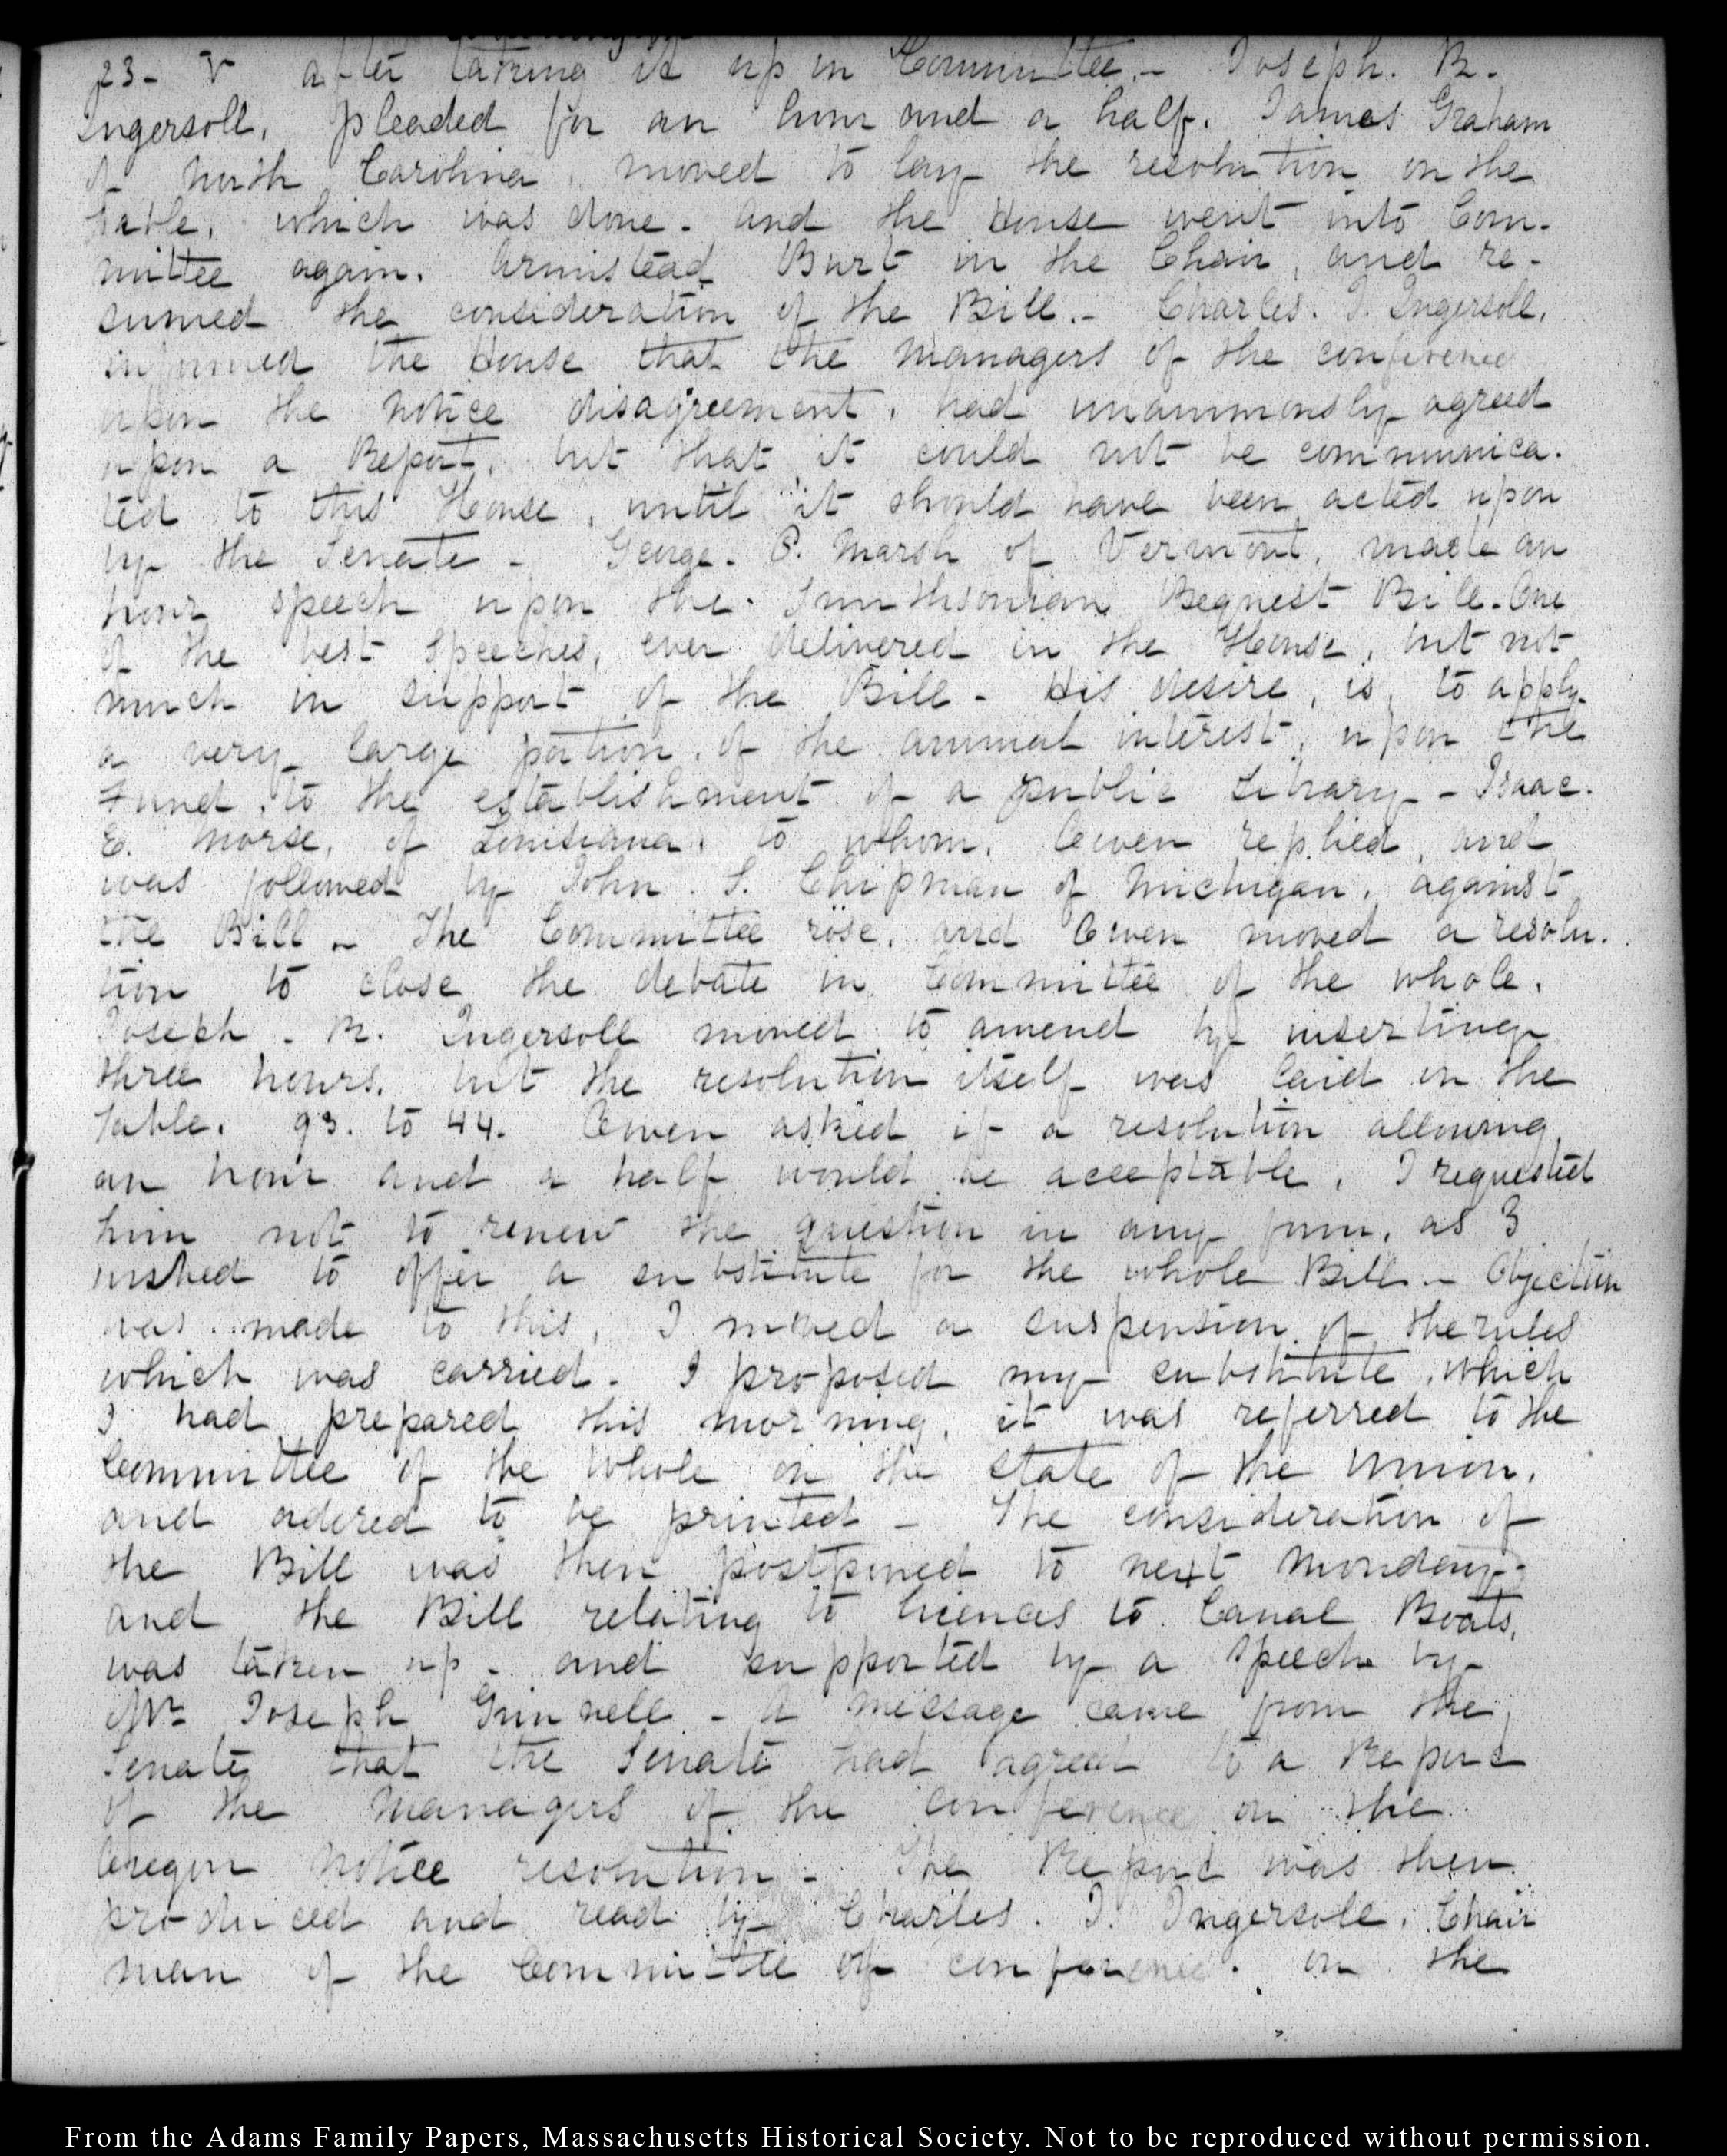 23- V after taking it up in Committee.- Joseph. R.
Ingersoll, pleaded for an hour and a half. James Graham
of North Carolina, moved to lay the resolution on the
table, which was done. and the House went into Com-
mittee again. Armistead Burt in the Chair, and re-
sumed the consideration of the Bill.- Charles. J. Ingersoll,
informed the House that the managers of the conference
upon the notice disagreement, had unanimously agreed
upon a Report, but that it could not be communica-
ted to this House, until it should have been acted upon
by the Senate - George. P. Marsh of Vermont, made an
hour speech upon the Smithsonian Bequest Bill. One
of the best speeches, ever delivered in the House, but not
much in support of the Bill - His desire, is, to apply
a very large portion, of the annual interest, upon the
Fund, to the establishment of a public Library - Isaac.
E. Morse, of Louisiana, to whom, Owen replied, and
was followed by John. S. Chipman of Michigan, against
the Bill - The Committee rose, and Owen moved a resolu-
tion to close the debate in Committee of the whole.
Joseph. R. Ingersoll moved to amend by inserting
three hours, but the resolution itself was laid on the
table. 93. to 44. Owen asked if a resolution allowing
an hour and a half would be acceptable, I requested
him not to renew the question in any form, as I
wished to offer a substitute for the whole Bill - Objection
was made to this, I moved a suspension of the rules
which was carried. I proposed my substitute, which
I had prepared this morning, it was referred to the
Committee of the Whole on the state of the Union,
and ordered to be printed - The consideration of
the Bill was then postponed to next Monday-
and the Bill relating to licences to Canal Boats,
was taken up - and supported by a speech by
Mr. Joseph Grinnell - A message came from the
Senate that the Senate had agreed to a Report
of the managers of the conference on the
Oregon notice resolution - The Report was then
produced and read by Charles. J. Ingersoll, Chair
man of the Committee of conference. on the